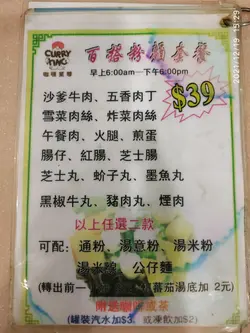 CURRY KING
咖喱皇帝
百搭粉麵套餐
早上6:00am－下午6:00pm
$39
沙爹牛肉、五香肉丁
雪菜肉絲、炸菜肉絲
午餐肉、火腿、煎蛋
腸仔、紅腸、芝士腸
芝士丸、蚧子丸、墨魚丸
黑椒牛丸、豬肉丸、煙肉
以上任選二款
可配：通粉、湯意粉、湯米粉
公仔麵
蕃茄湯底加 2元)
(罐裝汽水加$3，或凍飲加$2)
2021/12/19